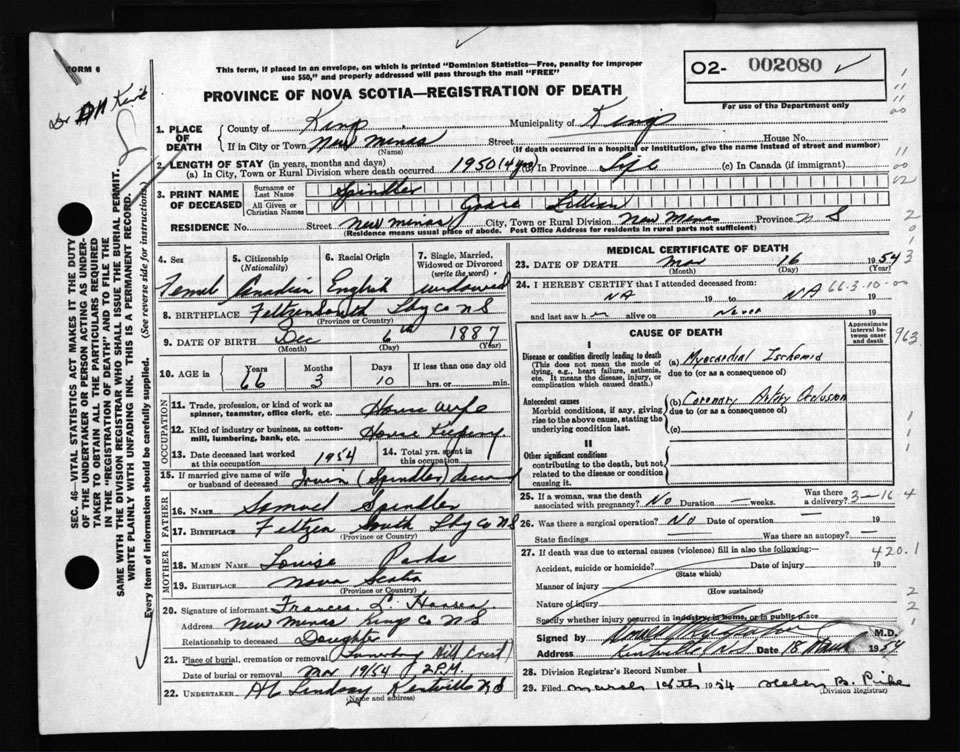 FORM 6
This form, if placed in an envelope, on which is printed "Dominion Statistics—Free, penalty for improper
use $50," and properly addressed will pass through the mail "FREE"
PROVINCE OF NOVA SCOTIA—REGISTRATION OF DEATH
O2- 002080
For use of the Department only
SEC. 46—VITAL STATISTICS ACT MAKES IT THE DUTY
OF THE UNDERTAKER OR PERSON ACTING AS UNDER-
TAKER TO OBTAIN ALL THE PARTICULARS REQUIRED
IN THE "REGISTRATION OF DEATH" AND TO FILE THE
SAME WITH THE DIVISION REGISTRAR WHO SHALL ISSUE THE BURIAL PERMIT.
WRITE PLAINLY WITH UNFADING INK. THIS IS A PERMANENT RECORD.
Every item of information should be carefully supplied. (See reverse side for instructions)
1. PLACE OF DEATH
County of Kings Municipality of Kings
If in City or Town New Minas Street House No.
(Name) (If death occurred in a hospital or institution, give the name instead of street and number)
2. LENGTH OF STAY (in years, months and days)
(a) In City, Town or Rural Division where death occurred 1950 (4 yrs) (b) In Province Life (c) In Canada (if immigrant)
3. PRINT NAME OF DECEASED
Surname or Last Name Spindler
All Given or Christian Names Lillian
RESIDENCE No. Street New Minas City, Town or Rural Division New Minas Province N S
(Residence means usual place of abode. Post Office Address for residents in rural parts not sufficient)
4. Sex Female
5. Citizenship (Nationality) Canadian
6. Racial Origin English
7. Single, Married, Widowed or Divorced (write the word) widowed
8. BIRTHPLACE Feltzen South Lby Co N S
(Province or Country)
9. DATE OF BIRTH Dec 6th 1887
(Month) (Day) (Year)
10. AGE in Years 66 Months 3 Days 10 If less than one day old hrs. or min.
OCCUPATION
11. Trade, profession, or kind of work as spinner, teamster, office clerk, etc. House wife
12. Kind of industry or business, as cotton-mill, lumbering, bank, etc. House Keeping
13. Date deceased last worked at this occupation 1954 14. Total yrs. spent in this occupation
15. If married give name of wife or husband of deceased Irvin (Spindler) deceased
FATHER
16. Name Samuel Spindler
17. BIRTHPLACE Feltzen South Lby Co N S
(Province or Country)
MOTHER
18. MAIDEN NAME Louise Parks
19. BIRTHPLACE Nova Scotia
(Province or Country)
20. Signature of informant Frances L. Hansen
Address New Minas Kings Co N S
Relationship to deceased Daughter
21. Place of burial, cremation or removal Lunenburg Hill Crest
Date of burial or removal Mar 19/54 2 P.M.
22. UNDERTAKER Lindsay Kentville N S
(Name and address)
MEDICAL CERTIFICATE OF DEATH
23. DATE OF DEATH Mar 16 1954
(Month) (Day) (Year)
24. I HEREBY CERTIFY that I attended deceased from:
NA 19 to NA 19
66-3-10-00
and last saw her alive on Never 19
CAUSE OF DEATH
Approximate interval between onset and death
I
Disease or condition directly leading to death
(This does not mean the mode of dying, e.g., heart failure, asthenia, etc. It means the disease, injury, or complication which caused death.)
(a) Myocardial Ischemia
due to (or as a consequence of)
963
Antecedent causes
Morbid conditions, if any, giving rise to the above cause, stating the underlying condition last.
(b) Coronary Artery Occlusion
due to (or as a consequence of)
(c)
II
Other significant conditions
contributing to the death, but not related to the disease or condition causing it.
25. If a woman, was the death associated with pregnancy? No Duration weeks. Was there a delivery?
3-16 4
26. Was there surgical operation? No Date of operation 19
State findings Was there an autopsy?
27. If death was due to external causes (violence) fill in also the following:—
420.1
Accident, suicide or homicide? Date of injury 19
(State which)
Manner of injury
(How sustained)
Nature of injury
Specify whether injury occurred in industry, in home, or in public place
Signed by M.D.
Address Kentville, N.S. Date 18 March 1954
28. Division Registrar's Record Number 1
29. Filed March 18th 1954 Helen B. Pike
(Division Registrar)